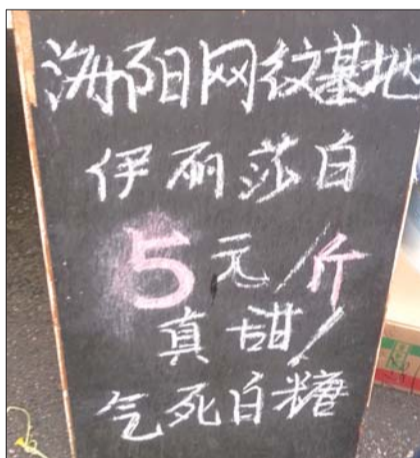 海阳网纹基地
伊丽莎白
5元/斤
真甜!
气死白糖